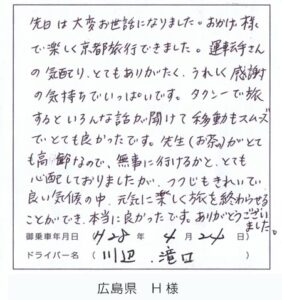 先日は大変お世話になりました。おかげ様
で楽しく京都旅行できました。運転手さん
の気配り、とてもありがたく、うれしく感謝
の気持ちでいっぱいです。タクシーで旅
するといろんな話が聞けて移動もスムーズ
でとても良かったです。先生(お茶の)がとて
も高齢なので、無事に行けるかと、とても
心配しておりましたが、ツツジもきれいで
良い気候の中、元気に楽しく旅を終わらせる
ことができ、本当に良かったです。ありがとうござい
ました。
御乗車年月日 H28 年 4 月 24 日)
ドライバー名 ( 川辺、滝口 )
広島県 H 様